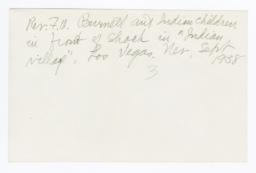 Rev. F. A. Burnell and Indian children
in front of Shack in "Indian
village". Las Vegas. Nev. Sept
1938
3